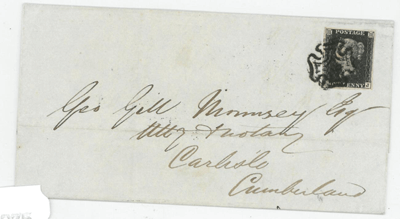 POSTAGE
PENNY
Geo Gill Mounsey Esq
Atty & Notary
Carlisle
Cumberland